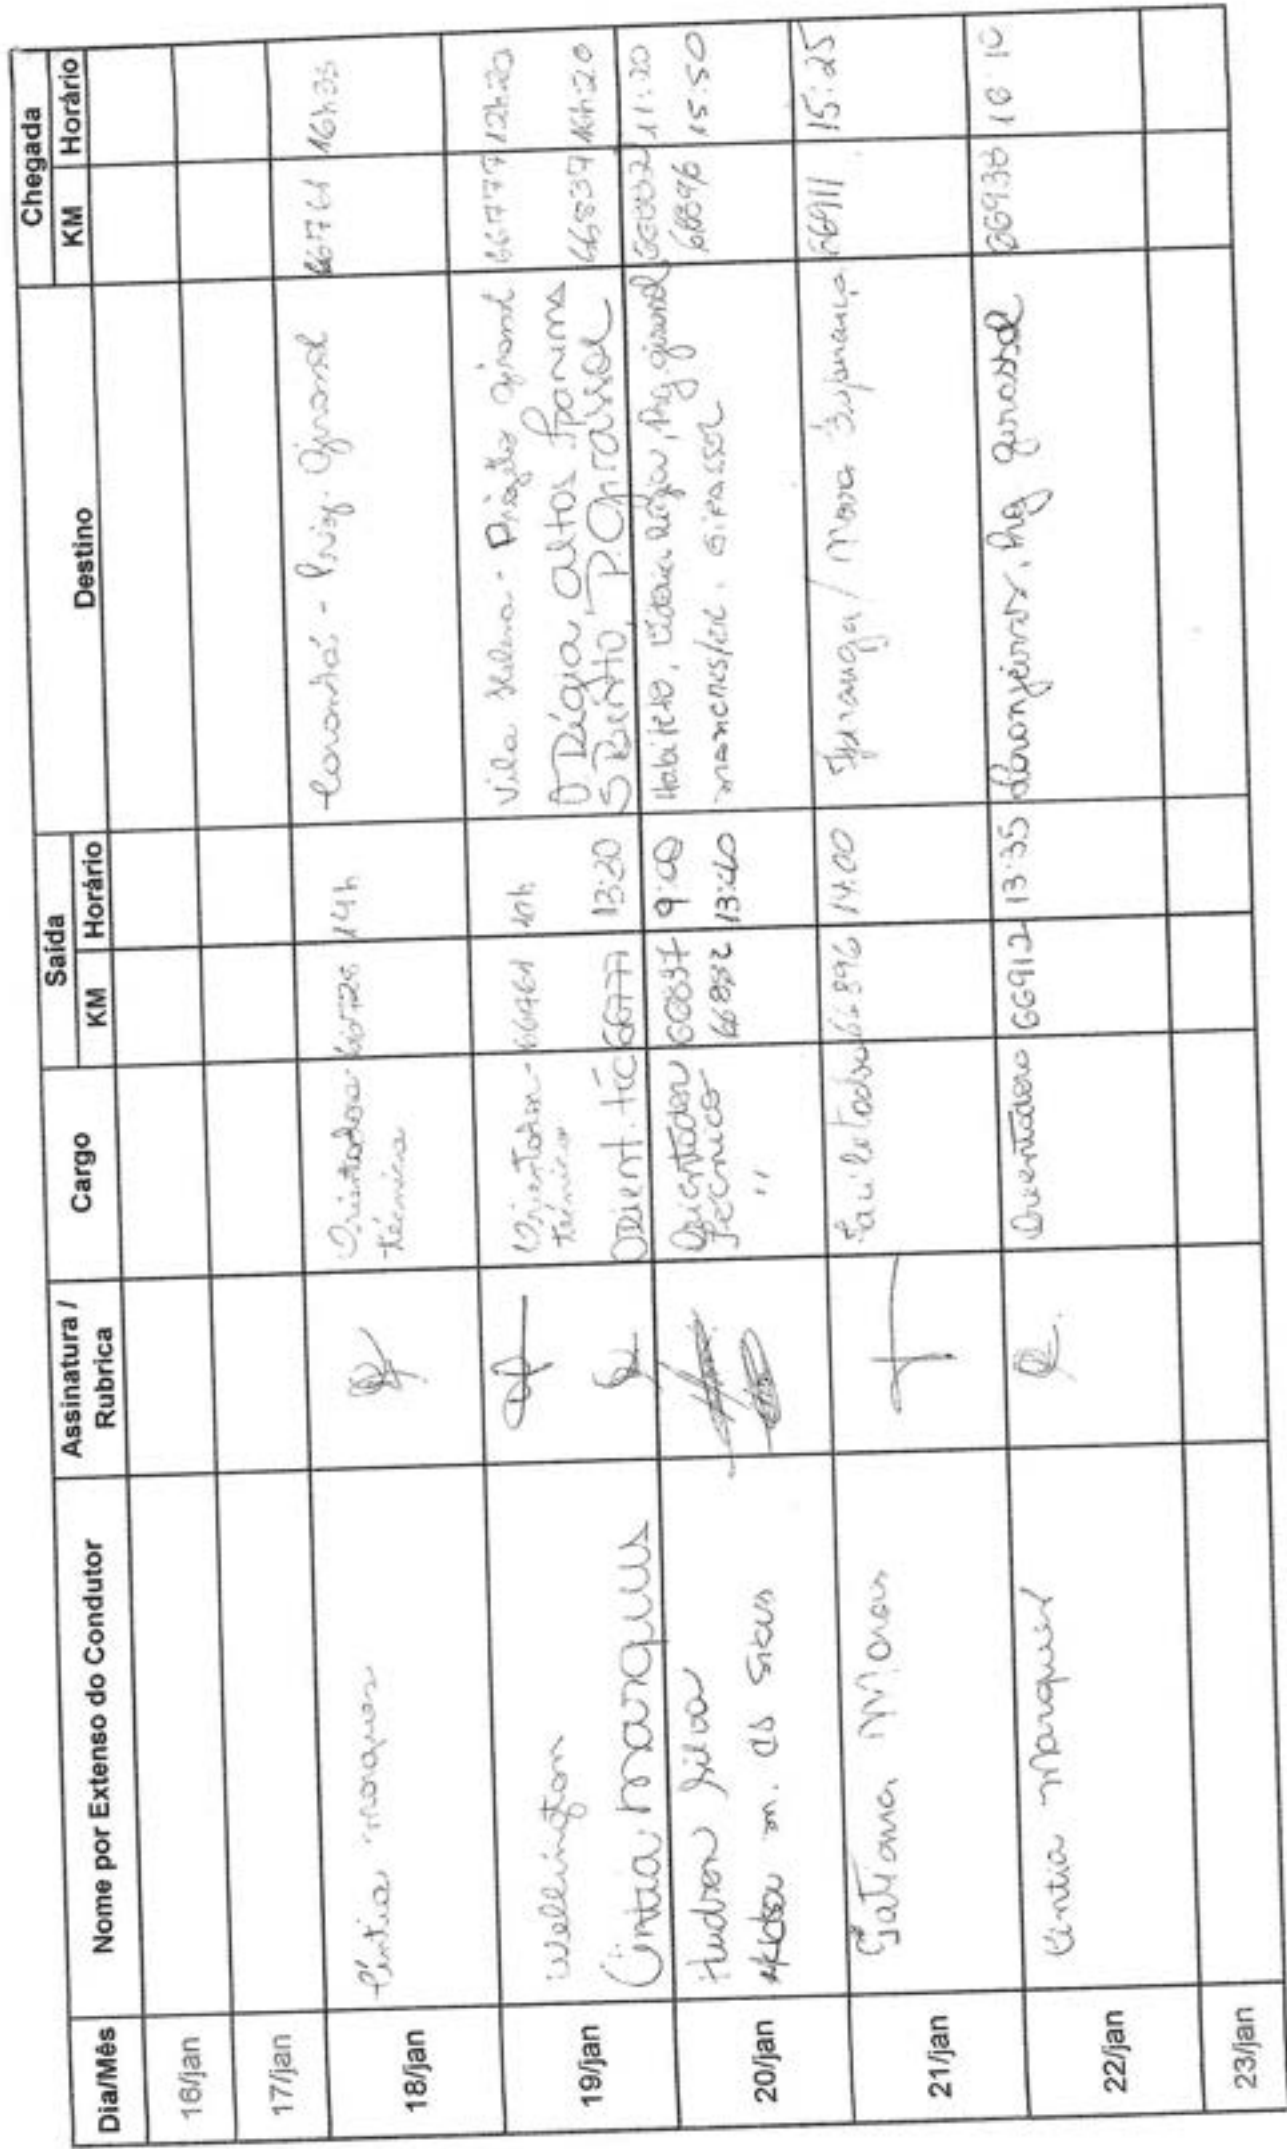 Dia/Mês Nome por Extenso do Condutor Assinatura / Rubrica Cargo Saída Destino Chegada
KM Horário KM Horário
16/jan
17/jan
18/jan Cíntia Marques Orientadora 66728 14h Coronhá - Proj. Girassol 66761 16h33
técnica
19/jan Wellington Orientador 66761 10h Vila Helena - Projeto Girassol 66777 12h20
técnico
Cíntia Marques Orient. téc 66777 13:20 V Régia, Altos Ipanema 66837 16h:20
S Bento, P. Girassol
20/jan Hudson Silva Orientador 66837 9:00 Habiteto, Vitória Régia, Proj girassol 66882 11:20
Técnico
m. da " 66882 13:40 GIRASSOL 66896 15:50
21/jan Tatiana Morais Facilitadora 66896 14:00 Ipiranga / Nova Esperança 66911 15:25
22/jan Cintia Marques Orientadora 66912 13:35 Laranjeiras, Proj girassol 66938 16:10
23/jan